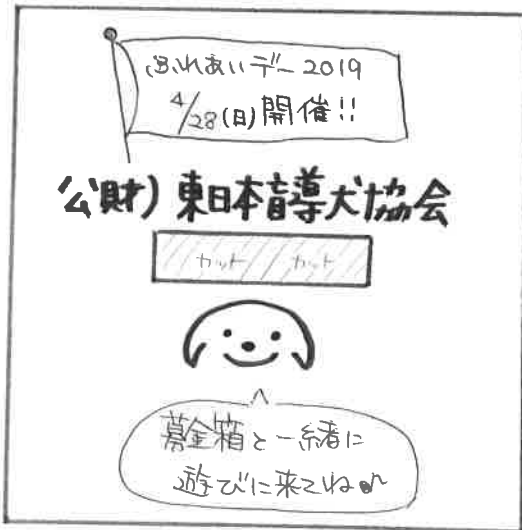 ふれあいデー2019
4/28(日)開催!!
公財)東日本盲導犬協会
カット カット
募金箱と一緒に
遊びに来てね♪